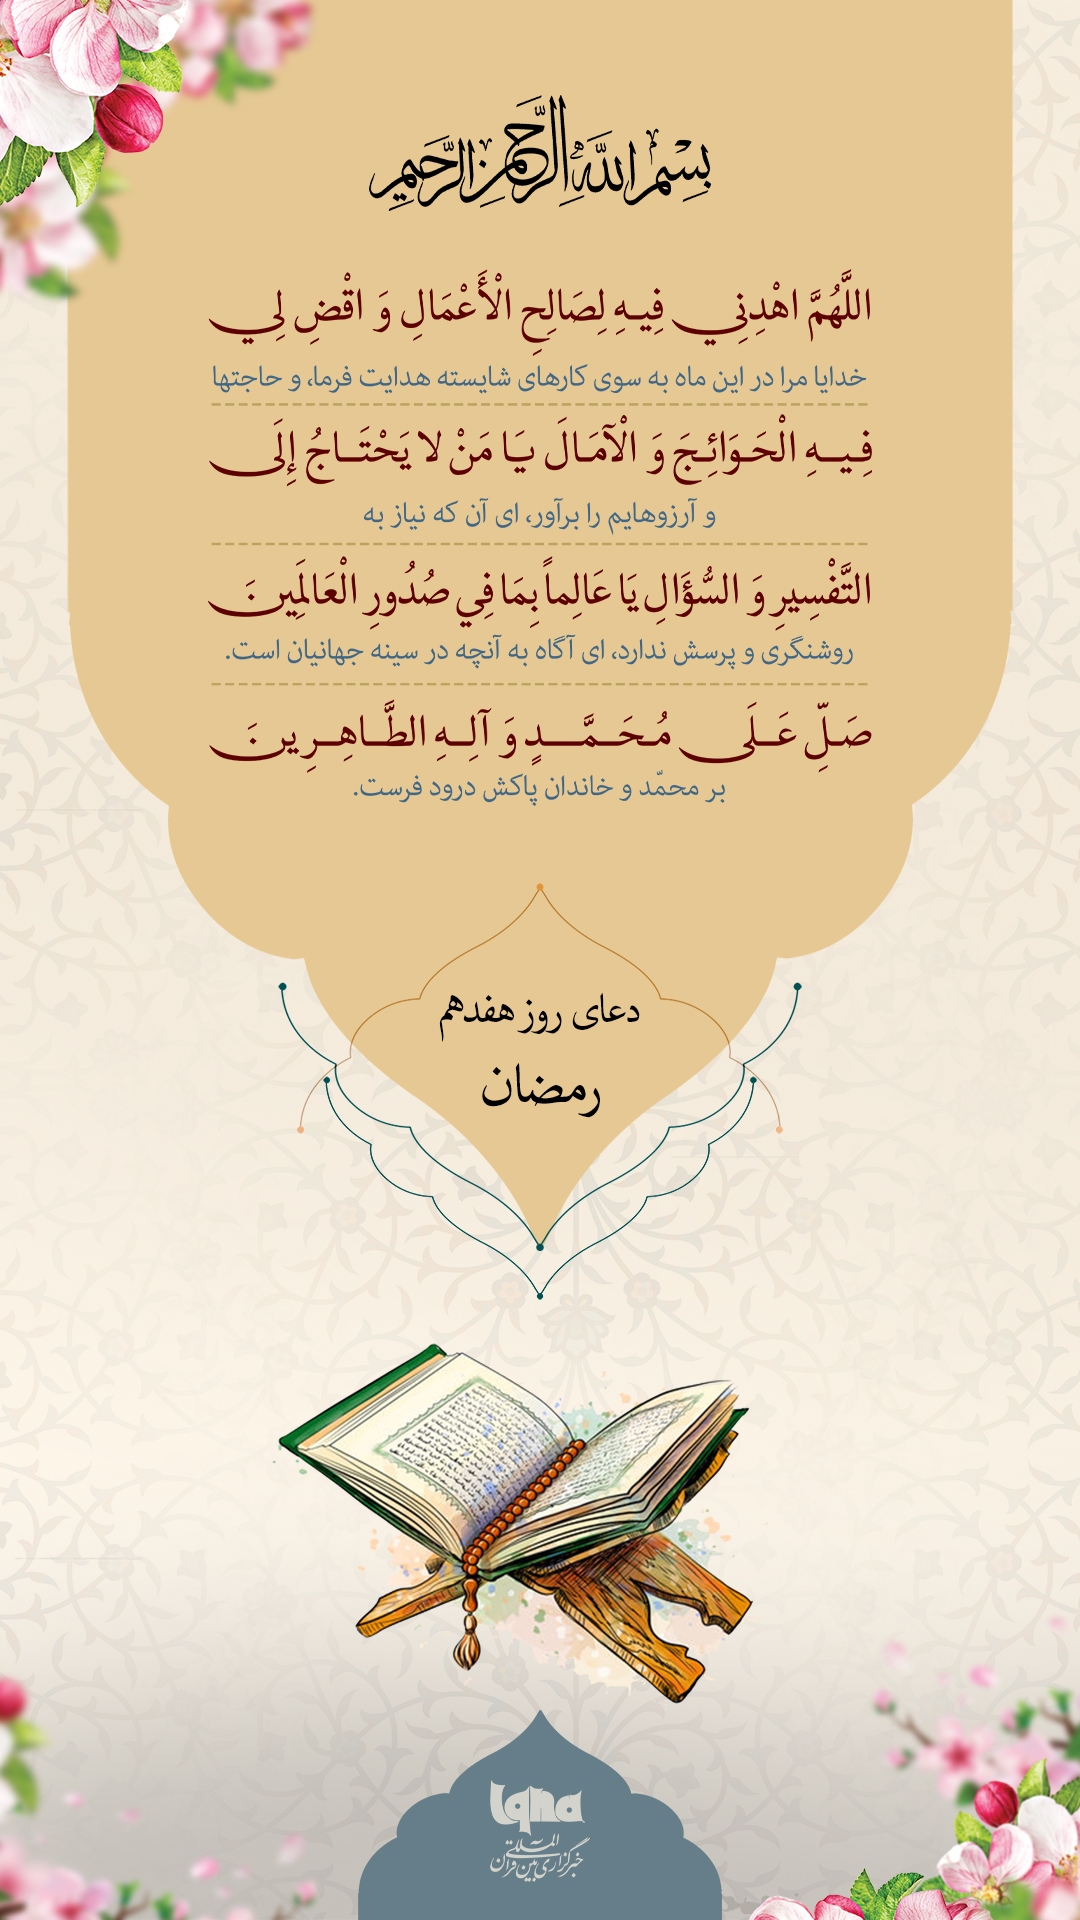 بِسْمِ اللَّهِ الرَّحْمنِ الرَّحیمِ
اللَّهُمَّ اهْدِنِي فِيهِ لِصَالِحِ الْأَعْمَالِ وَ اقْضِ لِي
خدایا مرا در این ماه به سوی کارهای شایسته هدایت فرما، و حاجتها
فِيهِ الْحَوَائِجَ وَ الْآمَالَ يَا مَنْ لا يَحْتَاجُ إِلَى
و آرزوهایم را برآور، ای آن که نیاز به
التَّفْسِيرِ وَ السُّؤَالِ يَا عَالِماً بِمَا فِي صُدُورِ الْعَالَمِينَ
روشنگری و پرسش ندارد، ای آگاه به آنچه در سینه جهانیان است.
صَلِّ عَلَى مُحَمَّدٍ وَ آلِهِ الطَّاهِرِينَ
بر محمّد و خاندان پاکش درود فرست.
دعای روز هفدهم
رمضان
Iqna
خبرگزاری بین المللی قرآن